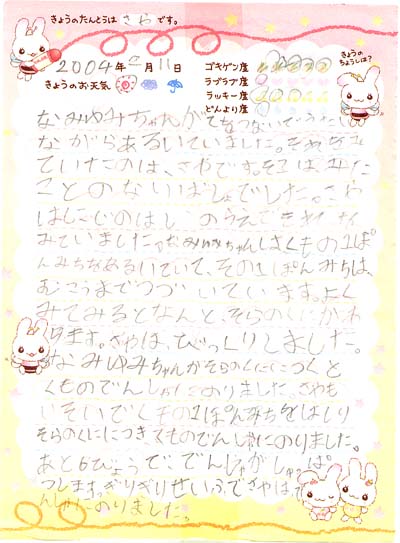 きょうのたんとうは さら です。
2004年 2月 11日
きょうのお天気
ゴキゲン度
ラブラブ度
ラッキー度
どんより度
きょうの
ちょうしは?
なみゆみちゃんが てをつないでうたい
ながらあるいていました。それをき
ていたのは、さやです。そこは みた
ことのないばしょでした。さら
はし の
みていました。なみゆみちゃんは くもの1ぽ
んみちをあるいていて、その1ぽんみちは、
むこうまでつづいています。よく
みてみるとなんと、そらのくにがあ
ります。さやは、びっくりしました。
なみゆみちゃんがそらのくににつくと
くものでんしゃにのりました。さやも
いそいでくもの1ぽんみちをはしり
そらのくににつきくものでんしゃにのりました。
あと6びょうで、でんしゃがしゅっぱ
つします。ぎりぎりせいふでさやはで
んしゃにのりました。